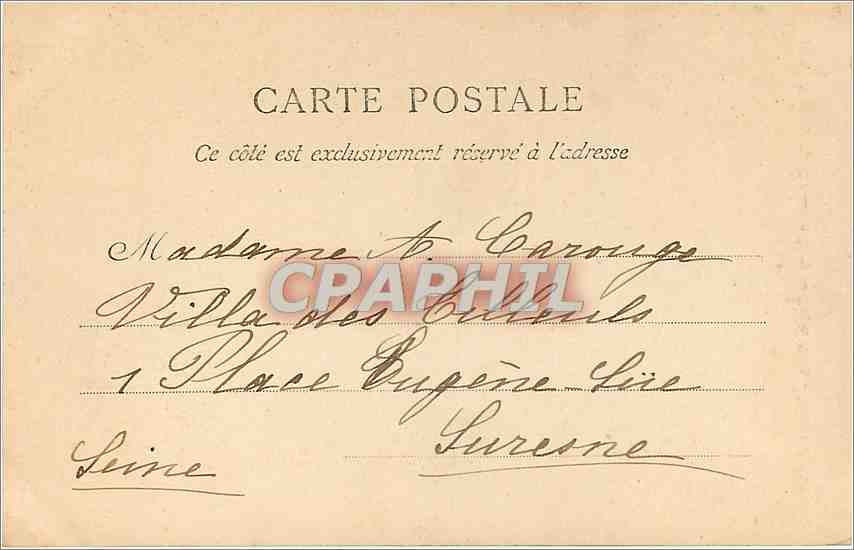 CARTE POSTALE
Ce côté est exclusivement réservé à l'adresse
Madame A. Carouge
CPAPHIL
Villa des Tilleuls
1 Place Eugène Süe
Suresne
Seine